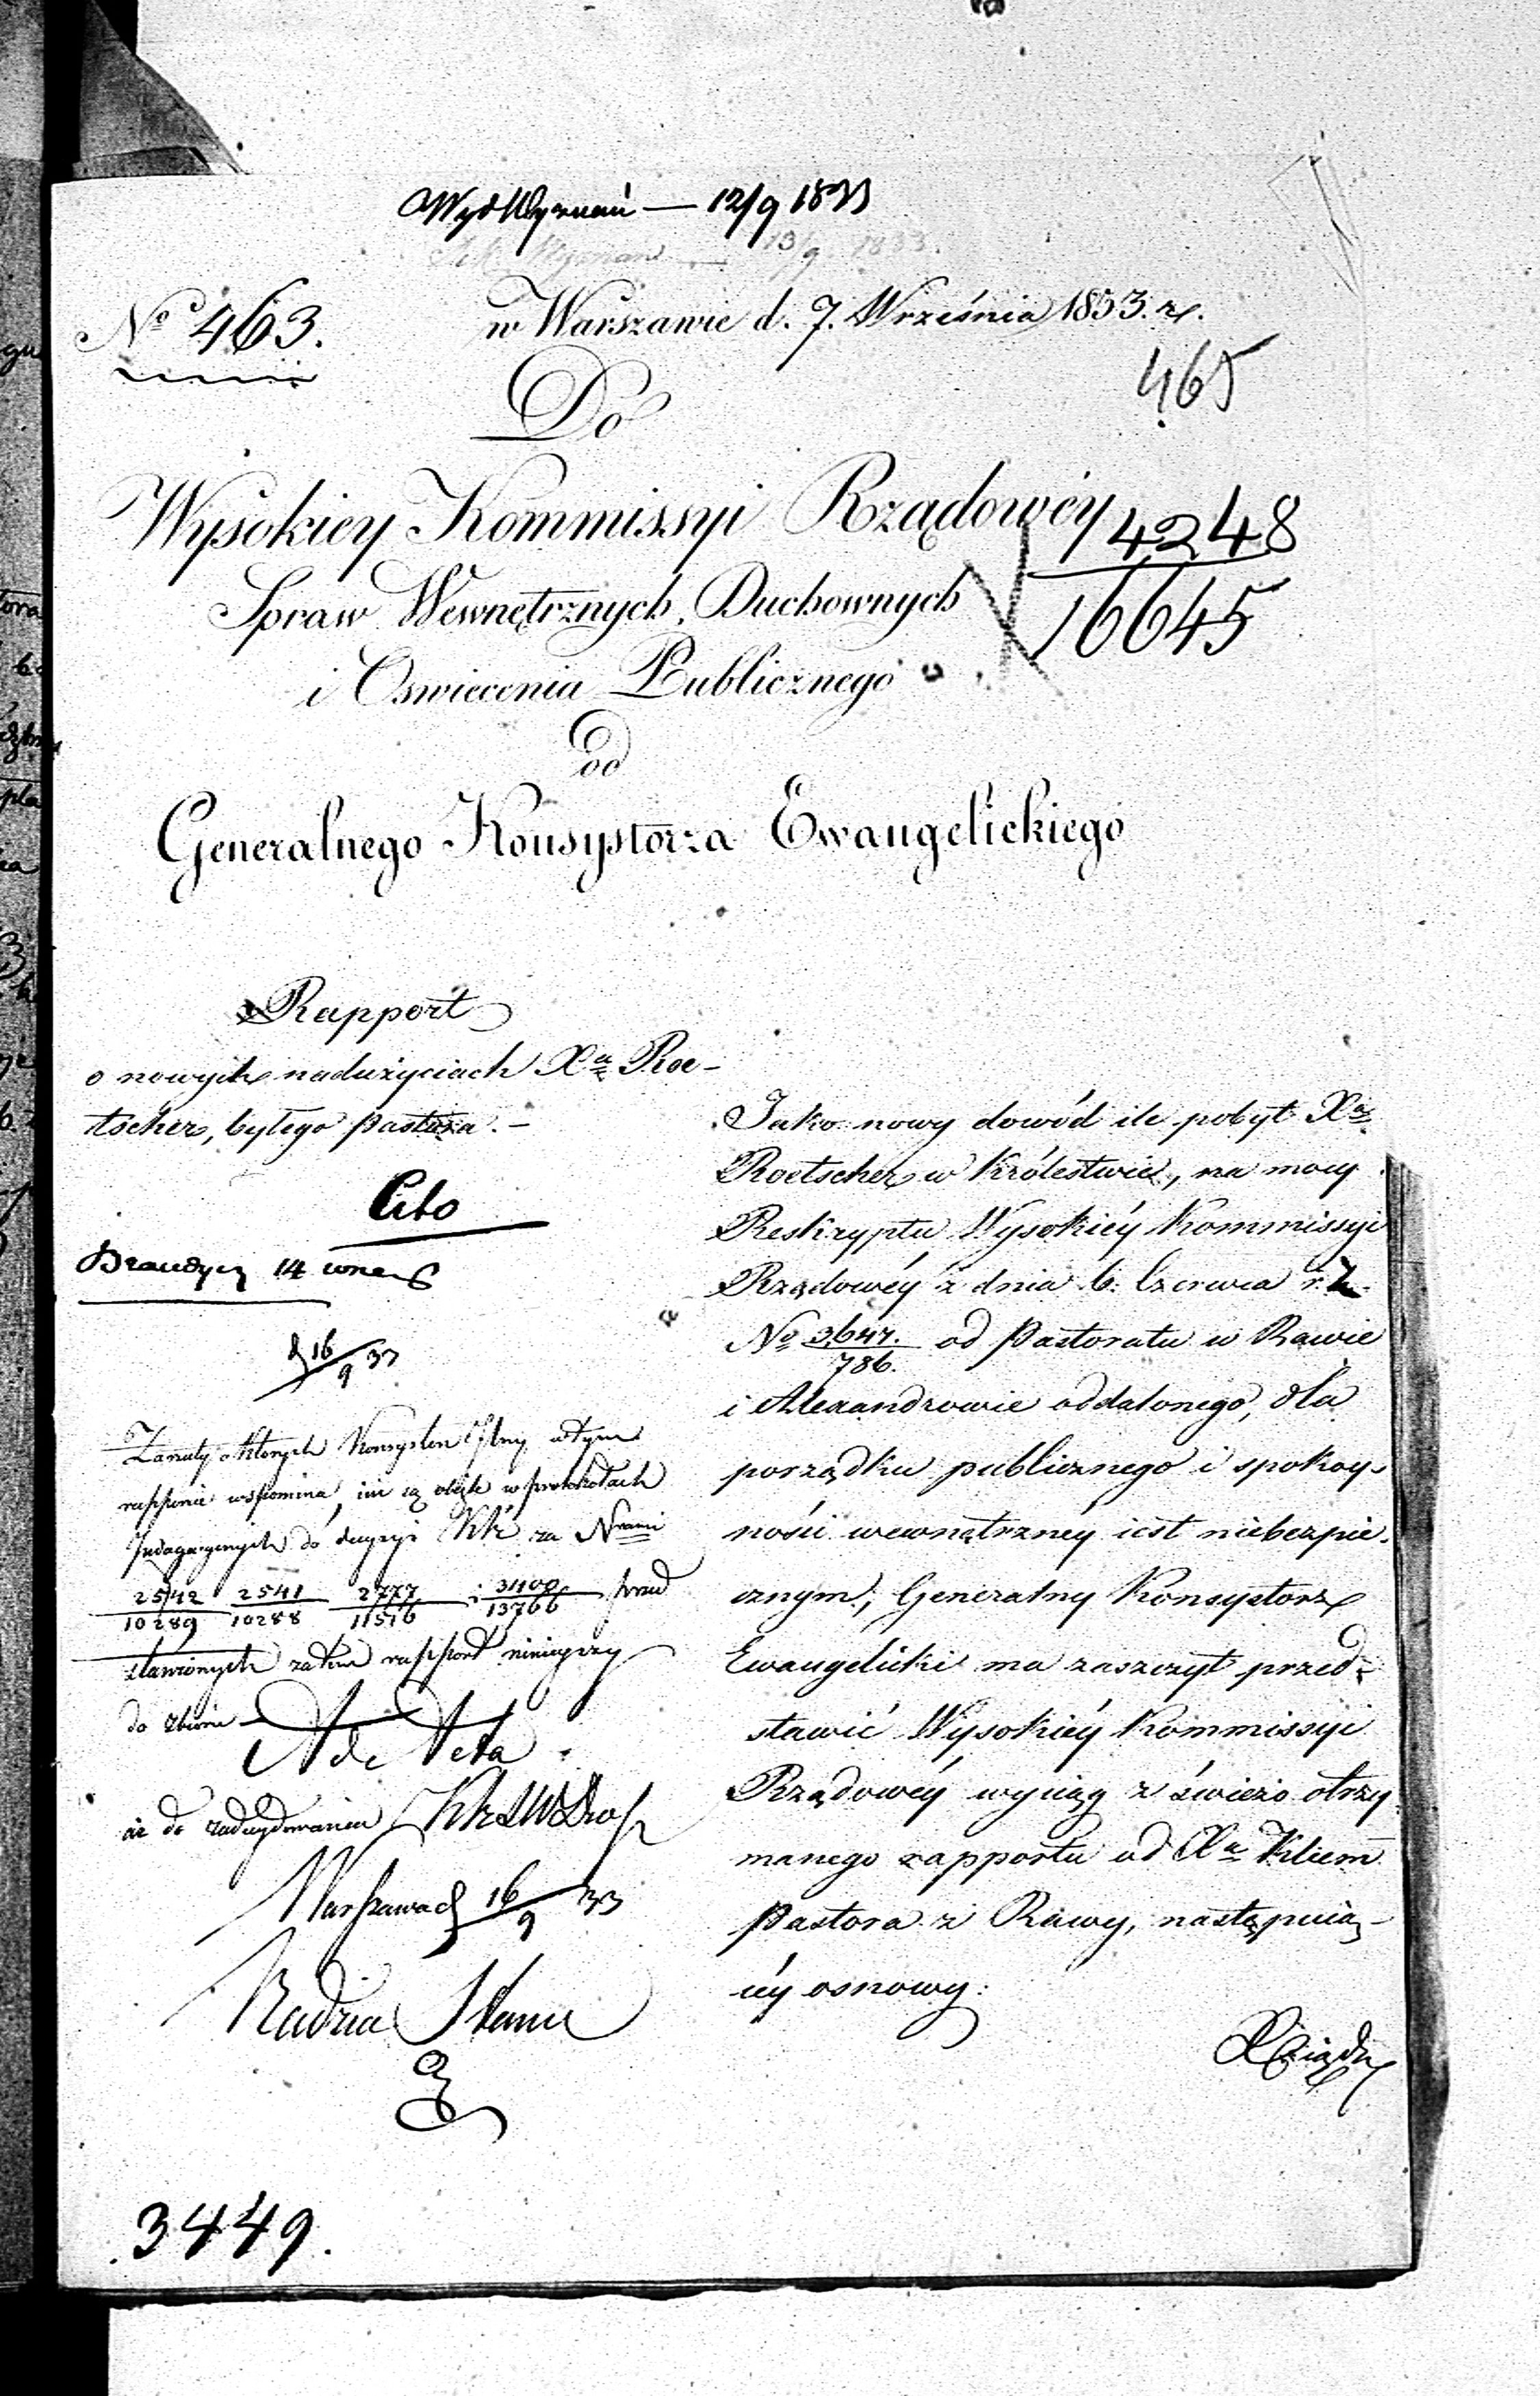 Wyd Wyznań — 12/9 1833
Wyznań — 13/9 1833.
No 463.
w Warszawie d. 7. Września 1833. r.
465
Do
Wysokiey Kommissyi Rządowéy
4248
16645
Spraw Wewnętrznych, Duchownych
i Oswiecenia Publicznego
od
Generalnego Konsystorza Ewangelickiego
Rapport
o nowych nadużyciach Xa Roe-
tscher, byłego Pastora. -
Cito
14
16/9 33
Zarzuty o których Konsystorz w tym
rapporcie wspomina, iuż są objęte w protokołach
Indagacyinych do decyzyi za Nrami
2542/10289 2541/10288 2777/11516 i 3400/13766 przed
stawionych zatem rapport ninieyszy
do zbioru
ad acta
aż do zadecydowania
Warszawa d 16/9 33
Radzca Stanu
3449.
Jako nowy dowód ile pobyt Xa
Roetscher w Królestwie, na mocy
Reskryptu Wysokiéy Kommissyi
Rządowéy z dnia 6. Czerwca r. z.
No 3647./786. od Pastoratu w Rawie
i Alexandrowie oddalonego, dla
porządku publicznego i spokoy-
ności wewnętrznéy iest niebezpie-
cznym, Generalny Konsystorz
Ewangelicki ma zaszczyt przed-
stawić Wysokiéy Kommissyi
Rządowéy wyciąg z świeżo otrzy
manego rapportu od Xa Kliem
Pastora z Rawy, następuią-
céy osnowy:
Xiądz